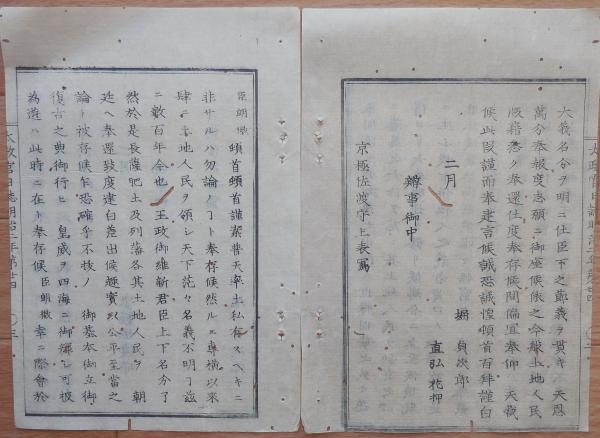 大義名分ヲ明ニ仕臣下之節義ヲ貫キ 天恩
萬分奉報度志願ニ御座候依之今般土地人民
版籍悉ク奉還仕度奉存候間偏宜奉仰 天裁
候此段謹而奉建言候誠恐誠惶頓首百拝謹白
堀 貞次郎
二月 直弘花押
辨事御中
京極佐渡守上表寫
臣朗徹頓首頓首謹案普天率土私有スヘキニ
非サルハ勿論ノコト奉存候然ルニ専横以来
肆ニ土地人民ヲ領シ天下茫々名義不明コト茲
ニ數百年今也 王政御維新君臣上下名分了
然於是長薩肥土及列藩各其土地人民ヲ 朝
廷ヘ奉還致度建白差出候趣實以公平至當之
論ト被存候乍恐確乎不抜ノ 御基本御立御
復古之典御行ヒ 皇威ヲ四海ニ御擴シ可被
為遊ハ此時ニ在ト奉存候 臣朗徹 幸ニ際會於
太政官日誌明治二年第廿四